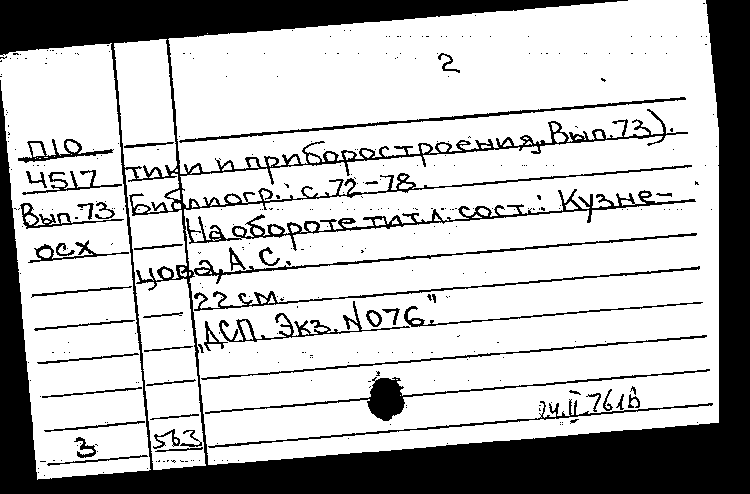 2
П10
4517 тики и приборостроения, Вып. 73).
Вып. 73 Библиогр.: с. 72-78.
осх На обороте тит. л. сост.: Кузне-
цова, А. С.
22 см.
„ДСП. Экз. N076."
24.II.
3 563